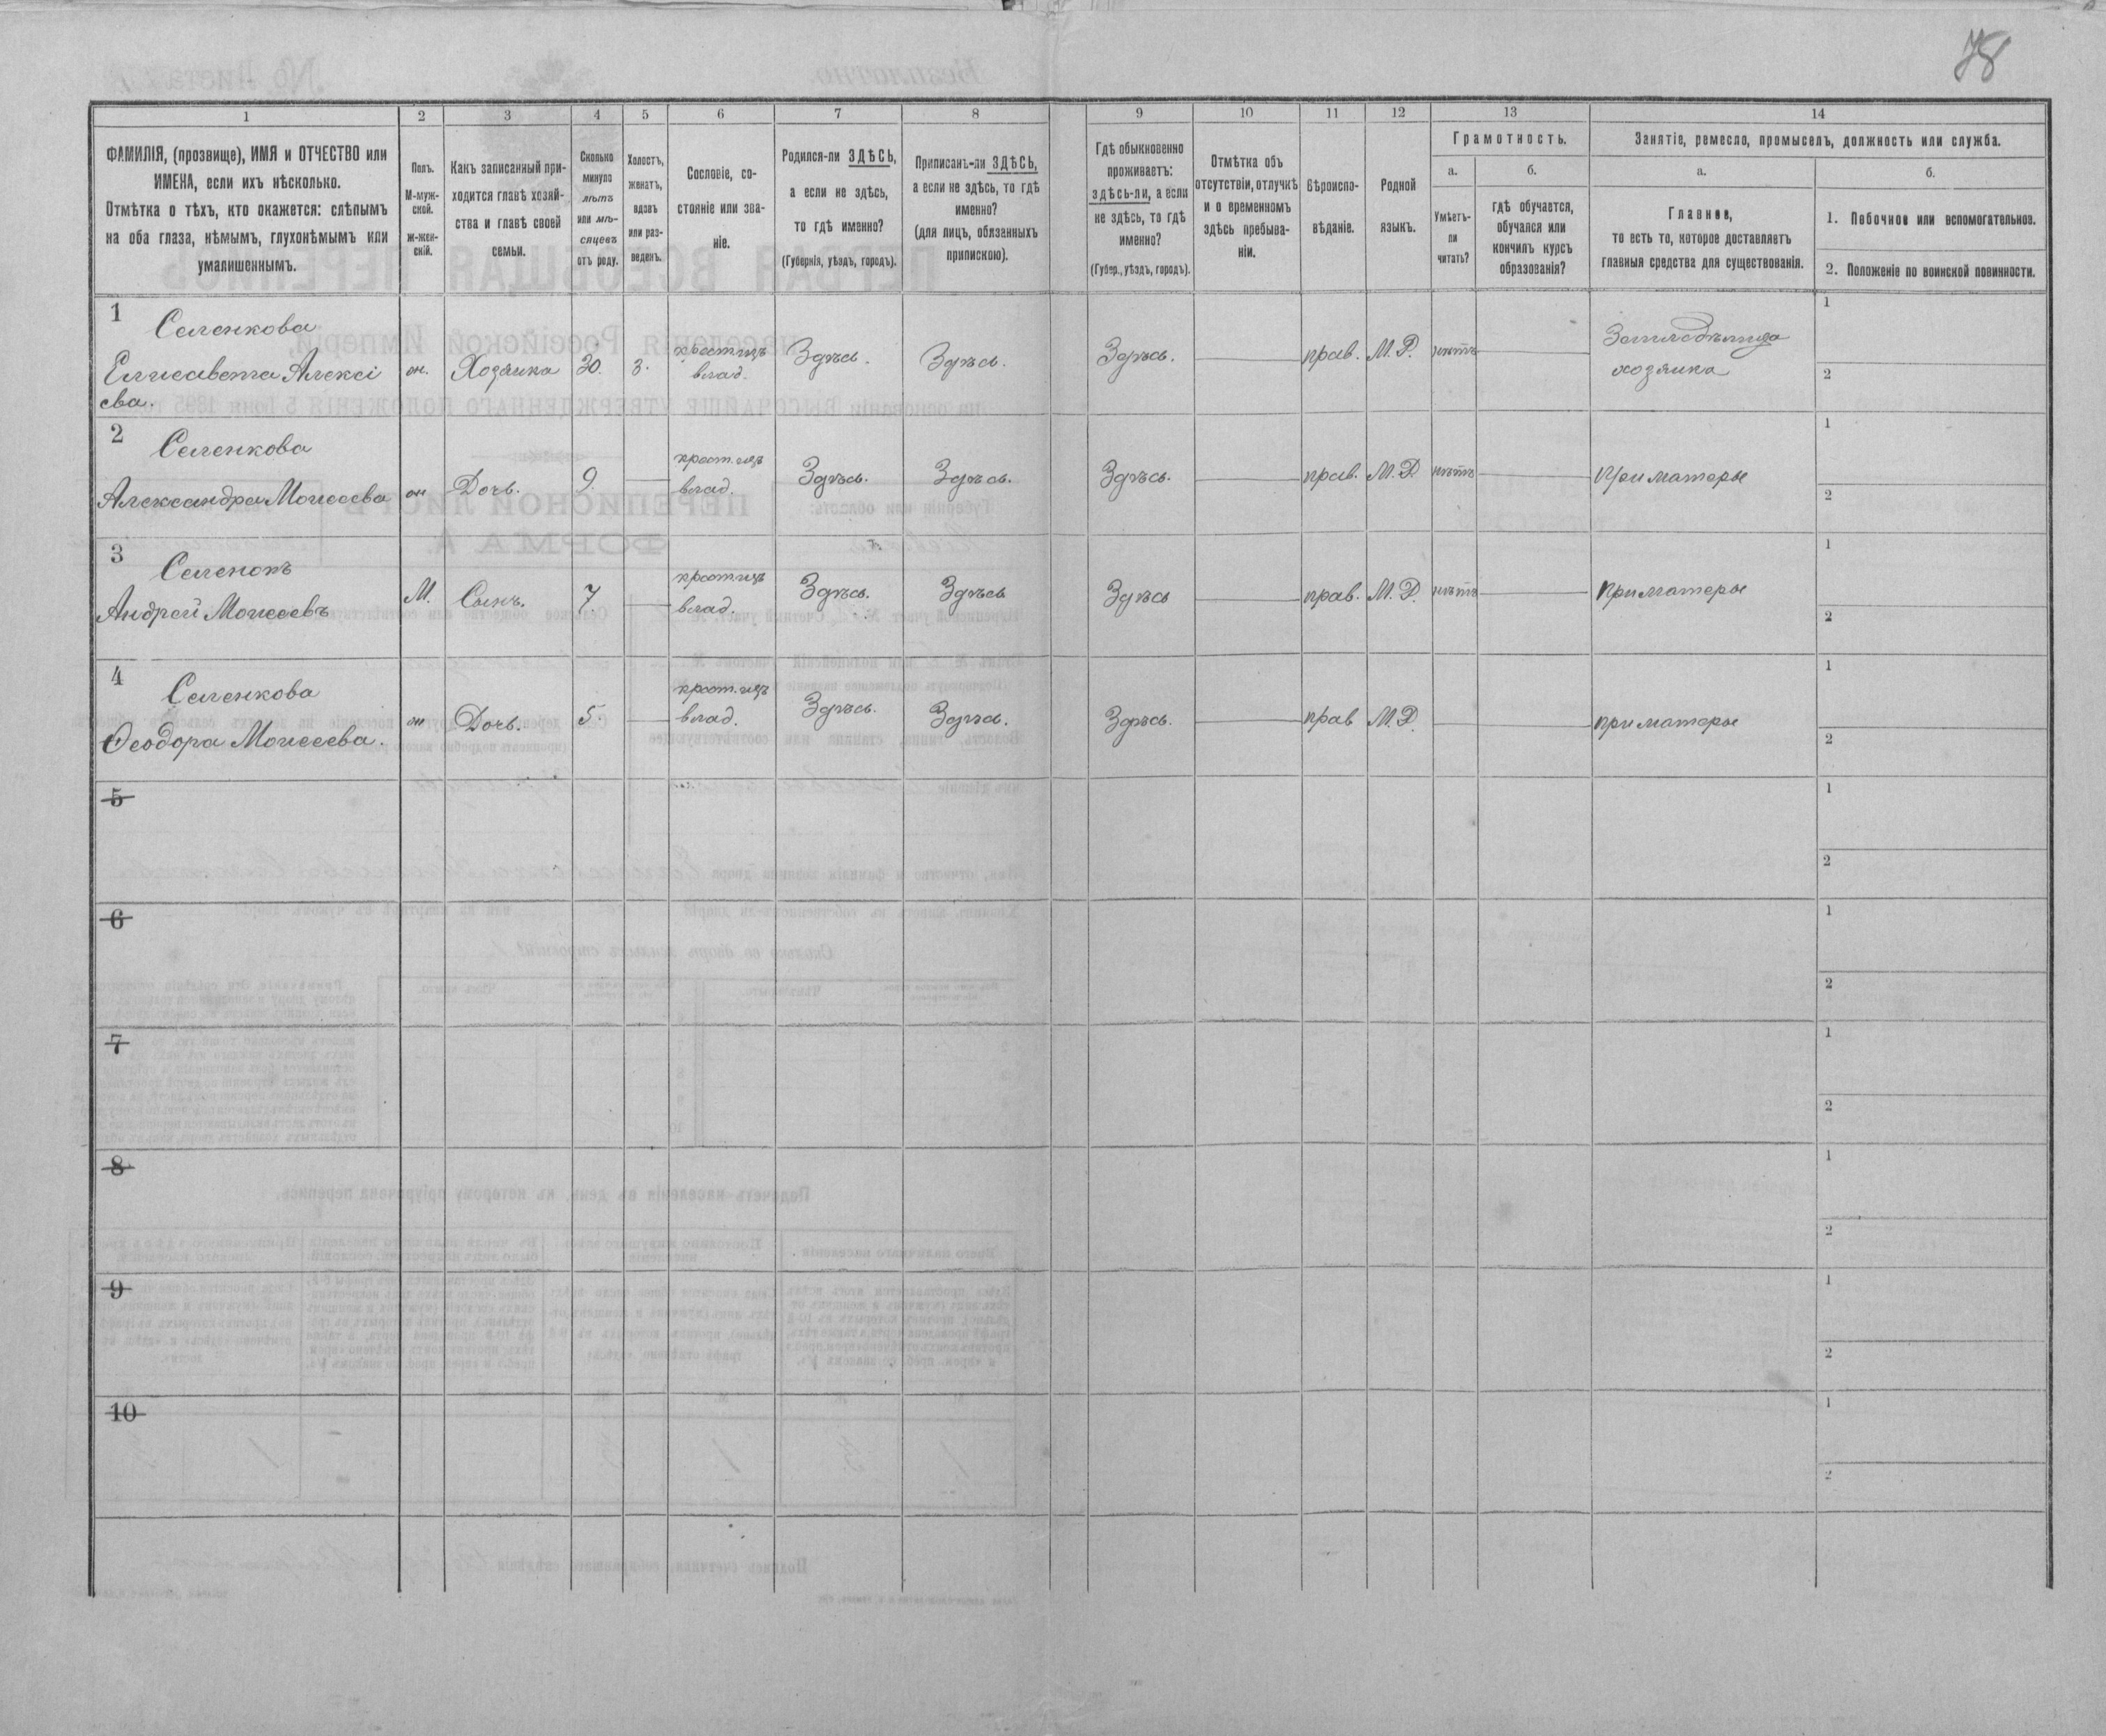 78
1 2 3 4 5 6 7 8 9 10 11 12 13 14
ФАМИЛІЯ, (прозвище), ИМЯ и ОТЧЕСТВО или
ИМЕНА, если ихъ нѣсколько.
Отмѣтка о тѣхъ, кто окажется: слѣпымъ
на оба глаза, нѣмымъ, глухонѣмымъ или
умалишеннымъ.
Полъ.
М-муж-
ской.
Ж-жен-
скій.
Какъ записанный при-
ходится главѣ хозяй-
ства и главѣ своей
семьи.
Сколько
минуло
лѣтъ
или мѣ-
сяцевъ
отъ роду.
Холостъ,
женатъ,
вдовъ
или раз-
веденъ.
Сословіе, со-
стояніе или зва-
ніе.
Родился-ли ЗДѢСЬ,
а если не здѣсь,
то гдѣ именно?
(Губернія, уѣздъ, городъ).
Приписанъ-ли ЗДѢСЬ,
а если не здѣсь, то гдѣ
именно?
(для лицъ, обязанныхъ
припискою).
Гдѣ обыкновенно
проживаетъ:
здѣсь-ли, а если
не здѣсь, то гдѣ
именно?
(Губер., уѣздъ, городъ).
Отмѣтка объ
отсутствіи, отлучкѣ
и о временномъ
здѣсь пребыва-
ніи.
Вѣроиспо-
вѣданіе.
Родной
языкъ.
Грамотность.
а.
Умѣетъ-
ли
читать?
б.
гдѣ обучается,
обучался или
кончилъ курсъ
образованія?
Занятіе, ремесло, промыселъ, должность или служба.
а.
Главное,
то есть то, которое доставляетъ
главныя средства для существованія.
б.
1. Побочное или вспомогательное.
2. Положеніе по воинской повинности.
1
Селенкова
Елисавета Алексі
ева.
ж. Хозяйка 30. з. крест. изъ
влад.
Здѣсь. Здѣсь. Здѣсь. прав. М. Р. нѣтъ
хозяйка
1
2
2
Селенкова
Александра Моисеева
ж Дочь. 9. крест. изъ
влад.
Здѣсь. Здѣсь. Здѣсь. прав. М. Р нѣтъ При матери
1
2
3
Селенокъ
Андрей Моисеевъ
М. Сынъ. 7. крест. изъ
влад.
Здѣсь. Здѣсь Здѣсь прав. М. Р. нѣтъ При матери
1
2
4
Селенкова
Ѳеодора Моисеева.
ж Дочь. 5. крест. изъ
влад.
Здѣсь. Здѣсь. Здѣсь. прав М. Р. при матери
1
2
5
1
2
6
1
2
7
1
2
8
1
2
9
1
2
10
1
2